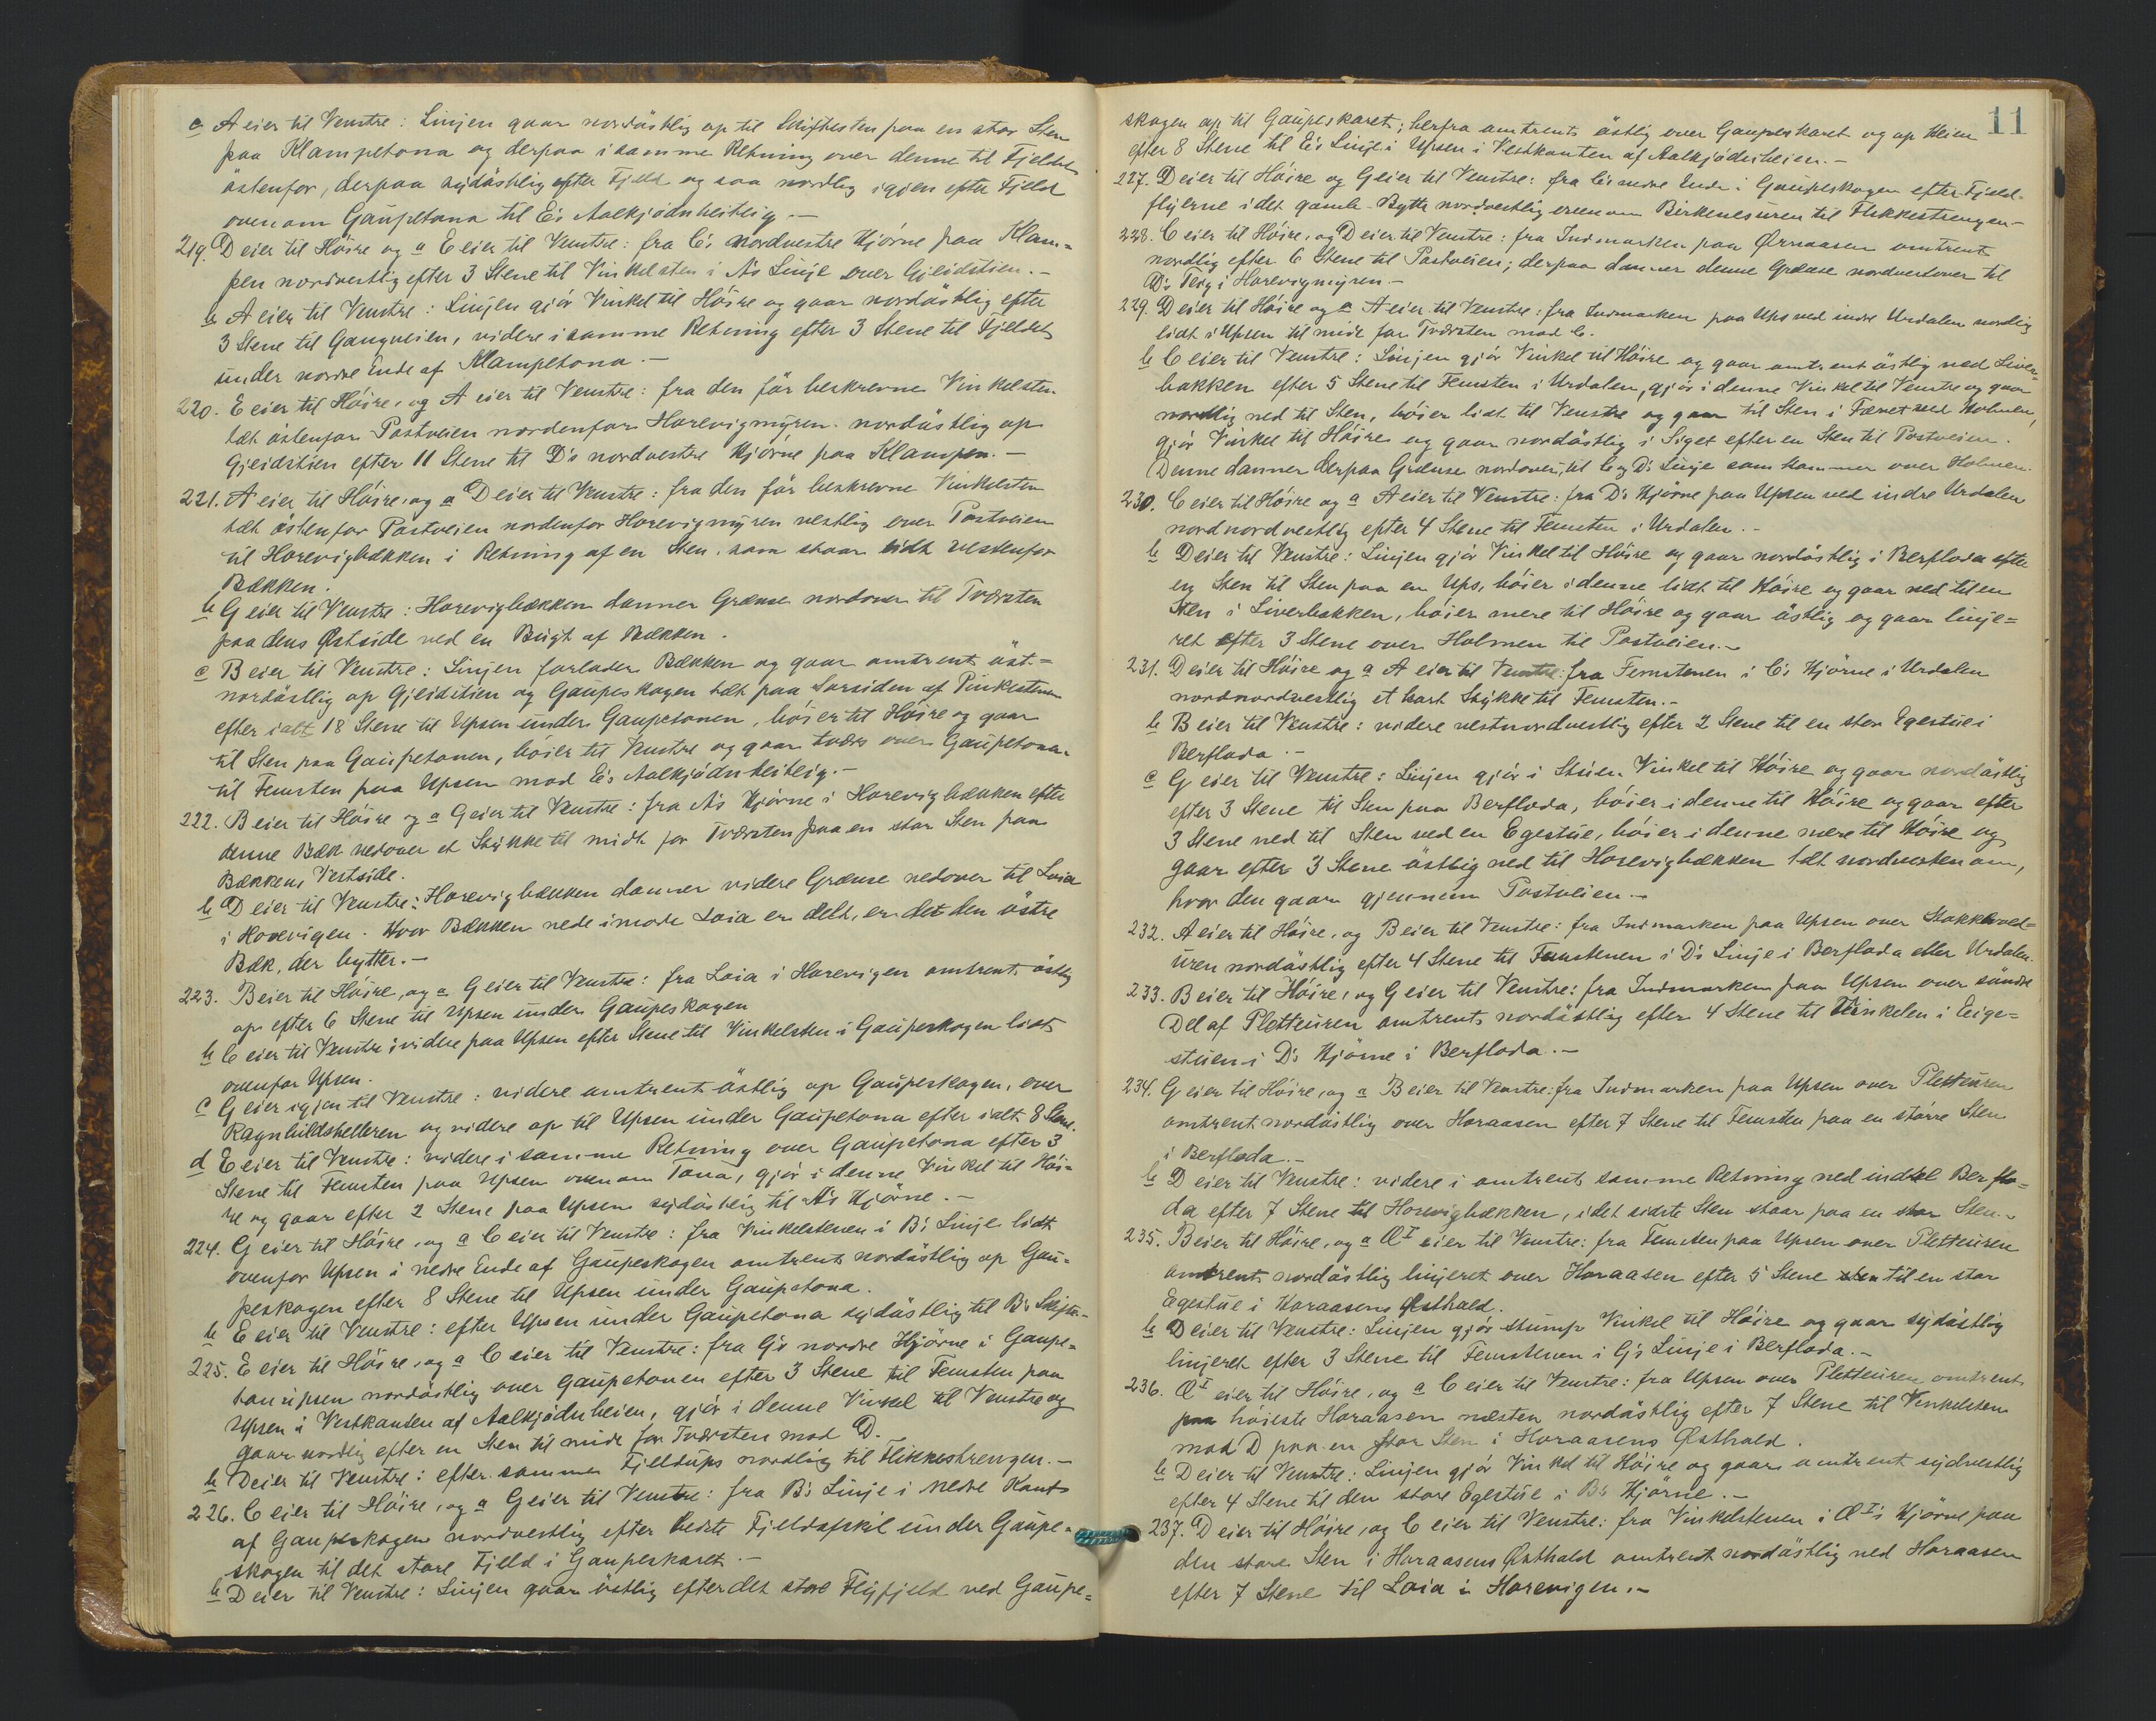 c A eier til Venstre: Linjen gaar nordöstlig op til Skiftesten paa en stor Sten
paa Klampetona og derpaa i samme Retning over denne til Fjeldet
östenfor, derpaa sydöstlig efter Fjeld og saa nordlig igjen efter Fjeld
ovenom Gaupetona til E's Aalkjødnheiteig.—
219. D eier til Høire og a E eier til Venstre: fra C's nordvestre Hjørne paa Klam=
pen nordvestlig efter 3 Stene til Vinkelsten i A's Linje over Gjeidstien.—
b A eier til Venstre: Linjen gjør Vinkel til Høire og gaar nordöstlig efter
3 Stene til Gangveien, videre i samme Retning efter 3 Stene til Fjeldet
under nordre Ende af Klampetona.—
220. E eier til Høire, og A eier til Venstre: fra den før beskrevne Vinkelsten
tæt östenfor Postveien nordenfor Horevigmyren nordöstlig op
Gjeidstien efter 11 Stene til D's nordvestre Hjørne paa Klampen.—
221. A eier til Høire, og a D eier til Venstre: fra den før beskrevne Vinkelsten
tæt östenfor Postveien nordenfor Horevigmyren vestlig over Postveien
til Horevigbækken i Retning af en Sten, som staar lidt vestenfor
Bækken.
b G eier til Venstre: Horevigbækken danner Grænse nordover til Tværsten
paa dens Østside ved en Bugt af Bækken.
c B eier til Venstre: Linjen forlader Bækken og gaar omtrent öst=
nordöstlig op Gjeidstien og Gaupeskogen tæt paa Sorsiden af Pinkestenen
efter ialt 18 Stene til Upsen under Gaupetonen, bøier til Høire og gaar
til Sten paa Gaupetonen, bøier til Venstre og gaar tværs over Gaupetona
til Femsten paa Upsen mod E's Aalkjødnheiteig.—
222. B eier til Høire og a G eier til Venstre: fra A's Hjørne i Horevigbækken efter
denne Bæk nedover et Stykke til midt for Tværsten paa en stor Sten paa
Bækkens Vestside.
b D eier til Venstre: Horevigbækken danner videre Grænse nedover til Loia
i Horevigen. Hvor Bækken nede imode Loia er delt, er det den östre
Bæk, der bytter.—
223. B eier til Høire, og a G eier til Venstre: fra Loia i Horevigen omtrent östlig
op efter 6 Stene til Upsen under Gaupeskogen
b C eier til Venstre: videre paa Upsen efter Stene til Vinkelsten i Gaupeskogen lidt
ovenfor Upsen.
c G eier igjen til Venstre: videre omtrent östlig op Gaupeskogen, over
Ragnhildshelleren og videre op til Upsen under Gaupetona efter ialt 8 Stene.
d E eier til Venstre: videre i samme Retning over Gaupetona efter 3
Stene til Femsten paa Upsen ovenom Tona, gjør i denne Vinkel til Høi=
re og gaar efter 2 Stene paa Upsen sydöstlig til A's Hjørne.—
224. G eier til Høire, og a C eier til Venstre: fra Vinkelstenen i B's Linje lidt
ovenfor Upsen i nedre Ende af Gaupeskogen omtrent nordöstlig op Gau=
peskogen efter 8 Stene til Upsen under Gaupetona.
b E eier til Venstre: efter Upsen under Gaupetona sydöstlig til B's Skifte.
225. E eier til Høire, og a C eier til Venstre: fra G's nordre Hjørne i Gaupe=
tonupsen nordöstlig over Gaupetonen efter 3 Stene til Femsten paa
Upsen i Vestkanten af Aalkjødnheien, gjør i denne Vinkel til Venstre og
gaar nordlig efter en Sten til midt for Tværsten mod D.
b D eier til Venstre: efter samme Fjeldups nordlig til Flikkestrengen.—
226. C eier til Høire, og a G eier til Venstre: fra B's Linje i nedre Kant
af Gaupeskogen nordvestlig efter bedste Fjeldafskil under Gaupe=
skogen til det store Fjeld i Gaupeskaret.—
b D eier til Venstre: Linjen gaar östlig efter det store Fligfjeld ved Gaupe=
11
skogen op til Gaupeskaret; herfra omtrent östlig over Gaupeskaret og op Heien
efter 8 Stene til E's Linje i Upsen i Vestkanten af Aalkjødnheien.—
227. D eier til Høire og G eier til Venstre: fra C's nedre Ende i Gaupeskogen efter Fjeld=
fljerne i det gamle Bytte nordvestlig ovenom Birkenesuren til Flikkestrengen.—
228. C eier til Høire, og D eier til Venstre: fra Indmarken paa Ørnaasen omtrent
nordlig efter 6 Stene til Postveien; derpaa danner denne Grænse nordvestover til
D's Teig i Horevigmyren.—
229. D eier til Høire og a A eier til Venstre: fra Indmarken paa Ups ved indre Urdalen nordlig
lidt i Upsen til midt for Tværsten mod C.
b C eier til Venstre: Linjen gjør Vinkel til Høire og gaar omtrent östlig ned Liver=
bakken efter 5 Stene til Femsten i Urdalen, gjør i denne Vinkel til Venstre og gaar
nordlig ned til Sten, bøier lidt til Venstre og gaar til Sten i Færet ved Holmen,
gjør Vinkel til Høire og gaar nordöstlig i Siget efter en Sten til Postveien.
Denne danner derpaa Grænse nordover, til C og D's Linje som kommer over Holmen.
230. C eier til Høire og a A eier til Venstre: fra D's Hjørne paa Upsen ved indre Urdalen
nordnordvestlig efter 4 Stene til Femsten i Urdalen.—
b D eier til Venstre: Linjen gjør Vinkel til Høire og gaar nordöstlig i Berfloda efter
en Sten til Sten paa en Ups, bøier i denne lidt til Høire og gaar ned til en
Sten i Liverbakken, bøier mere til Høire og gaar östlig og gaar linje=
ret efter 3 Stene over Holmen til Postveien.—
231. D eier til Høire og a A eier til Venstre: fra Femstenen i C's Hjørne i Urdalen
nordnordvestlig et kort Stykke til Femsten.—
b B eier til Venstre: videre vestnordvestlig efter 2 Stene til en stor Egestue i
Berfloda.—
c G eier til Venstre: Linjen gjør i Stuen Vinkel til Høire og gaar nordöstlig
efter 3 Stene til Sten paa Berfloda, bøier i denne til Høire og gaar efter
3 Stene ned til Sten ved en Egestue, bøier i denne mere til Høire og
gaar efter 3 Stene östlig ned til Horevigbækken lidt nordvestenom,
hvor den gaar gjennem Postveien.—
232. A eier til Høire, og B eier til Venstre: fra Indmarken paa Upsen over Stokkevold=
uren nordöstlig efter 4 Stene til Femstenen i D's Linje i Berfloda eller Urdalen.
233. B eier til Høire, og G eier til Venstre: fra Indmarken paa Upsen over söndre
Del af Pletteuren omtrent nordöstlig efter 4 Stene til Vinkelen i Eige=
stuen i D's Hjørne i Berfloda.—
234. G eier til Høire, og a B eier til Venstre: fra Indmarken paa Upsen over Pletteuren
omtrent nordöstlig over Horaasen efter 7 Stene til Femsten paa en större Sten
i Berfloda.—
b D eier til Venstre: videre i omtrent samme Retning ned indtil Berflo=
da efter 7 Stene til Horevigbækken, idet sidste Sten staar paa en stor Sten.—
235. B eier til Høire, og a Æ I eier til Venstre: fra Femsten paa Upsen over Pletteuren
omtrent nordöstlig linjeret over Horaasen efter 5 Stene til en stor
Egestue i Horaasens Østhald.
b D eier til Venstre: Linjen gjør stump Vinkel til Høire og gaar sydöstlig
linjeret efter 3 Stene til Femstenen i G's Linje i Berfloda.—
236. Æ I eier til Høire, og a C eier til Venstre: fra Upsen over Pletteuren omtrent
paa høieste Horaasen næsten nordöstlig efter 7 Stene til Vinkelsten
mod D paa en stor Sten i Horaasens Østhald.
b D eier til Venstre: Linjen gjør Vinkel til Høire og gaar omtrent sydvestlig
efter 4 Stene til den store Egestue i B's Hjørne.—
237. D eier til Høire, og C eier til Venstre: fra Vinkelstenen i Æ I's Hjørne paa
den store Sten i Horaasens Østhald omtrent nordöstlig ned Horaasen
efter 7 Stene til Loia i Horevigen.—